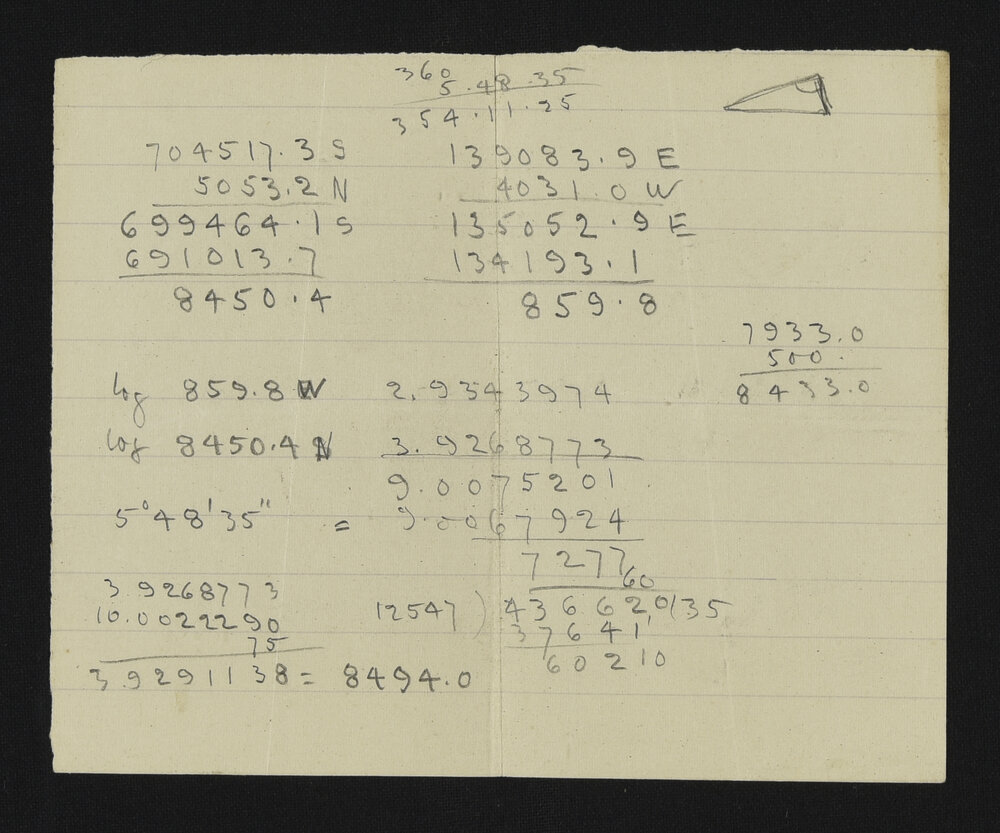 360
5.48.35
354.11.25
704517.3 S 139083.9 E
5053.2 N 4031.0 W
699464.1 S 135052.9 E
691013.7 134193.1
8450.4 859.8
7933.0
500.
8433.0
log 859.8 W 2.9343974
log 8450.4 N 3.9268773
9.0075201
5°48'35" = 9.0067924
7277
60
3.9268773
10.0022290
75
3.9291138 = 8494.0
12547) 436620(35
37641
60210